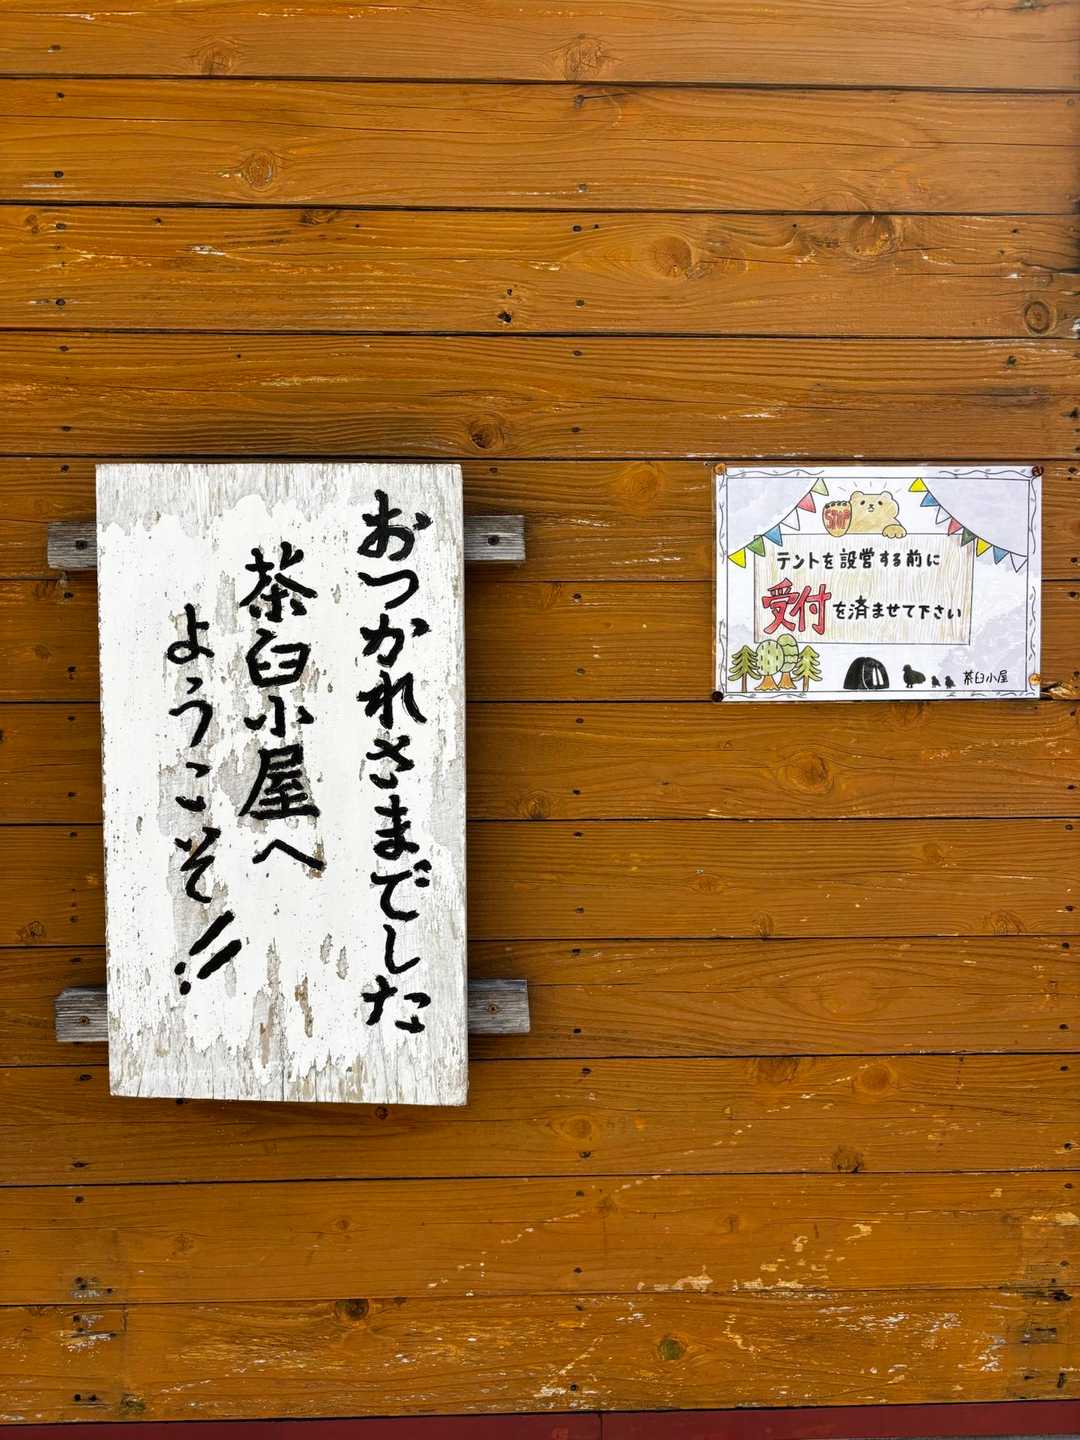 おつかれさまでした
茶臼小屋へ
ようこそ!!
STOP
テントを設営する前に
受付を済ませて下さい
茶臼小屋